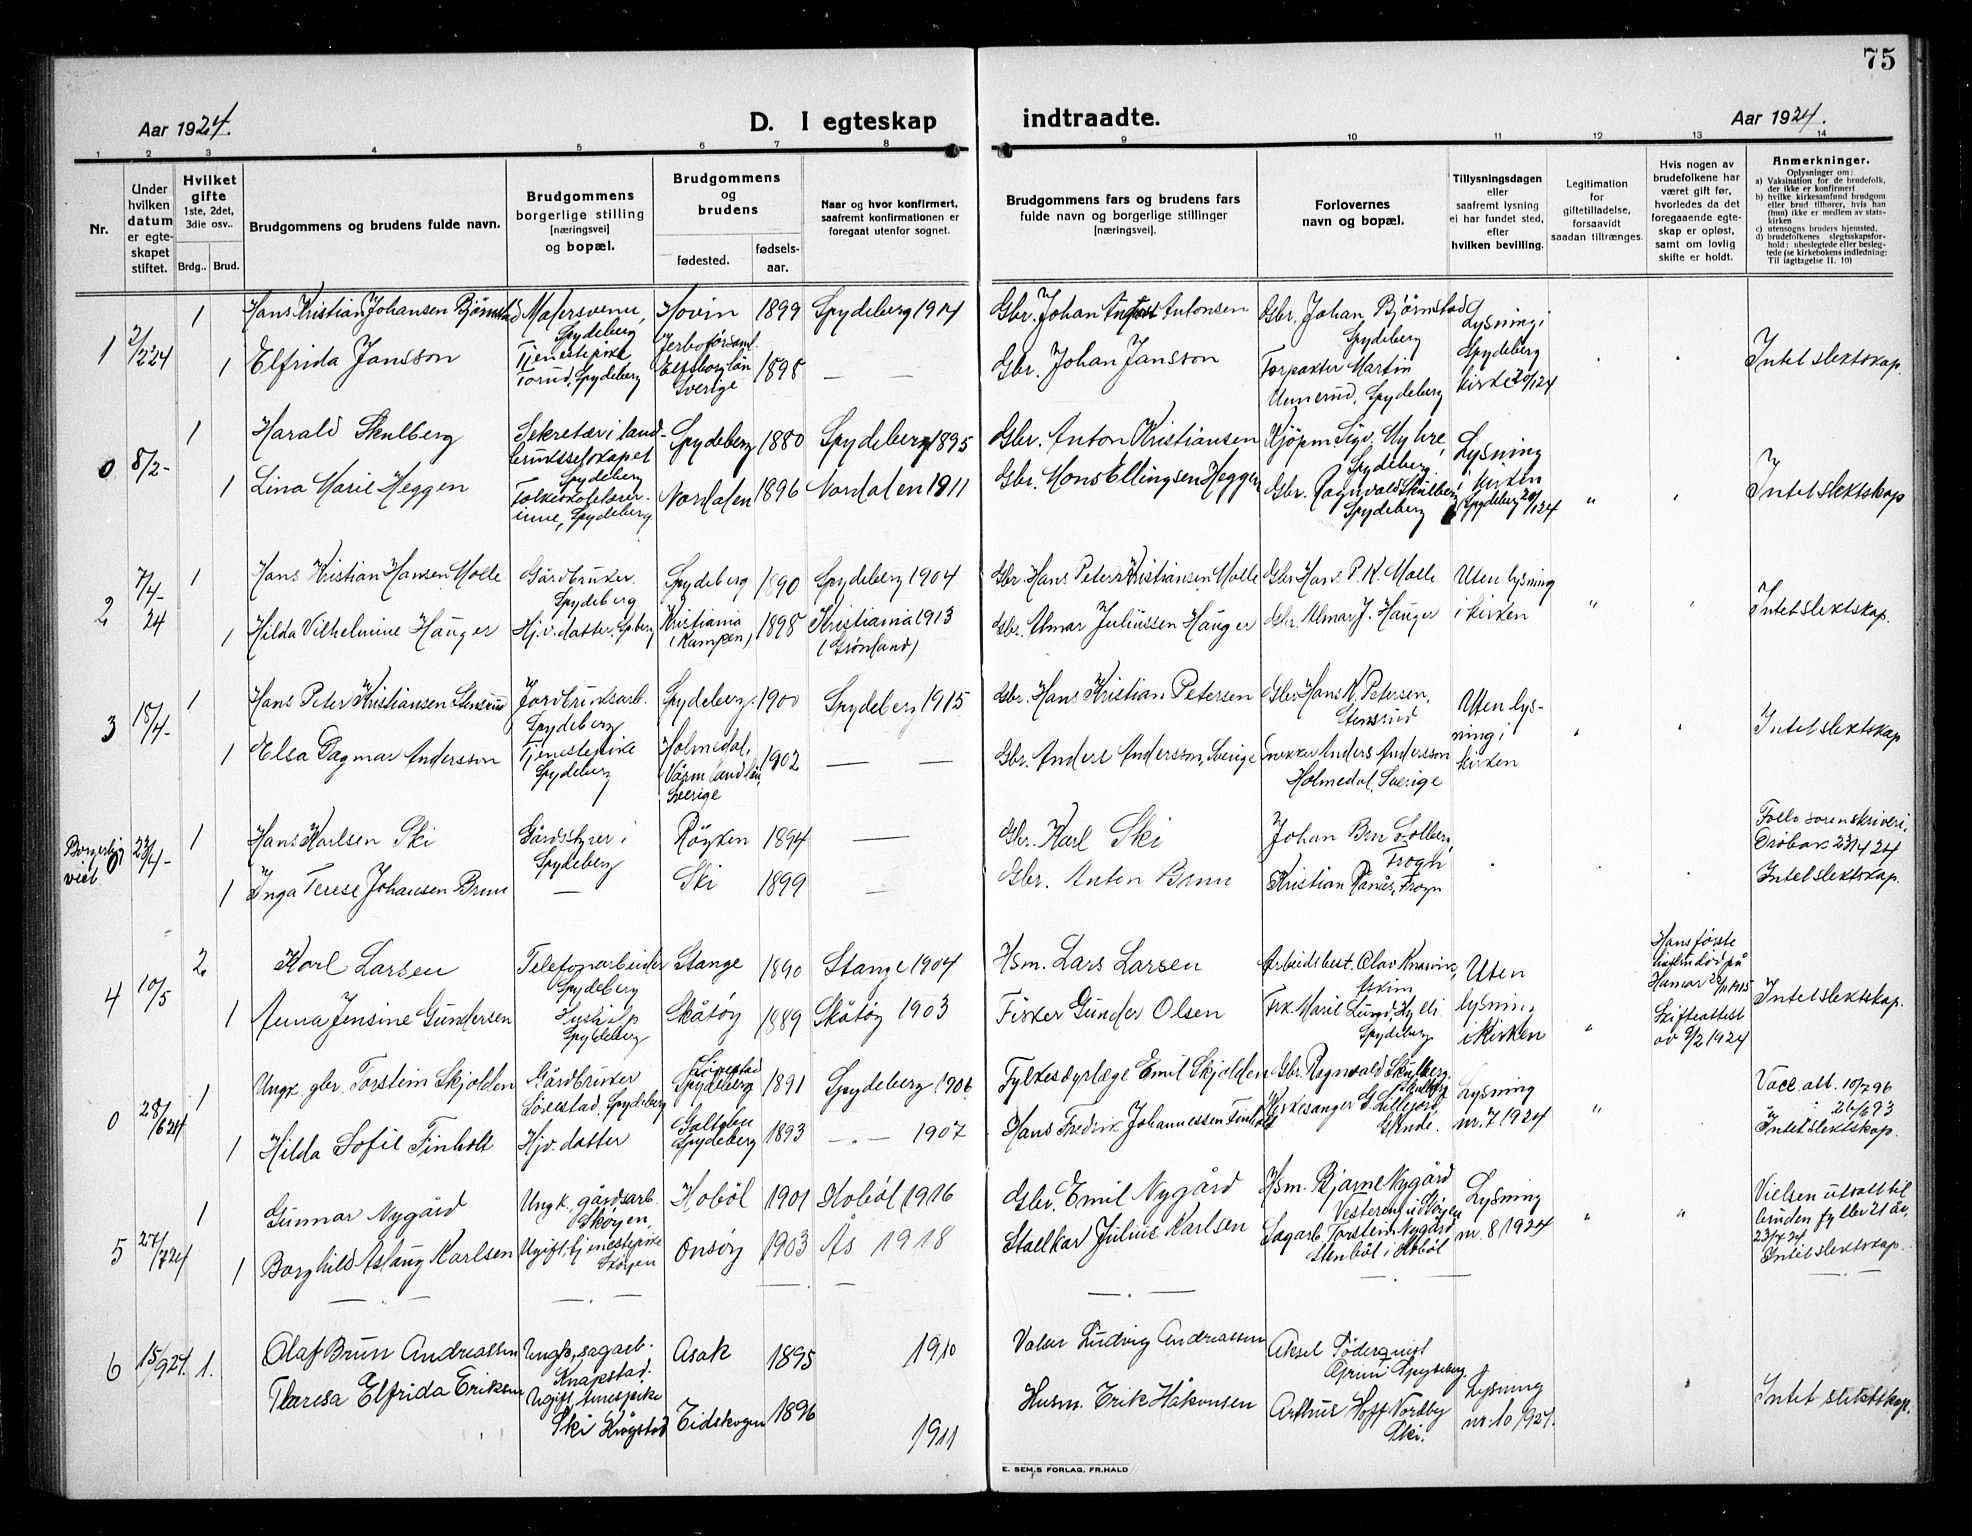 75
Aar 1924.
D. I egteskap indtraadte.
Aar 1924.
1 2 3 4 5 6 7 8 9 10 11 12 13 14
Nr.
Under hvilken datum er egteskapet stiftet.
Hvilket gifte
1ste, 2det, 3die osv..
Brdg.. Brud.
Brudgommens og brudens fulde navn.
Brudgommens borgerlige stilling [næringsvei] og bopæl.
Brudgommens og brudens
fødested.
fødselsaar.
Naar og hvor konfirmert, saafremt konfirmationen er foregaat utenfor sognet.
Brudgommens fars og brudens fars fulde navn og borgerlige stillinger [næringsvei].
Forlovernes navn og bopæl.
Tillysningsdagen eller saafremt lysning ei har fundet sted, efter hvilken bevilling.
Legitimation for giftetilladelse, forsaavidt saadan tiltrænges.
Hvis nogen av brudefolkene har været gift før, hvorledes da det foregaaende egteskap er opløst, samt om lovlig skifte er holdt.
Anmerkninger.
Oplysninger om:
a) Vaksination for de brudefolk, der ikke er konfirmert
b) hvilke kirkesamfund brudgom eller brud tilhører, hvis han (hun) ikke er medlem av statskirken
c) utensogns bruders hjemsted.
d) brudefolkenes slegtsskapsforhold: ubeslegtede eller beslegtede (se kirkebokens indledning: Til iagttagelse II. 10)
1 2/2 24 1 Hans Kristian Johansen Bjørnstad Malersvenn, Spydeberg Hovin 1899 Spydeberg 1914 Gbr. Johan Anton Antonsen Gbr. Johan Bjørnstad Spydeberg Lysning i Spydeberg kirke 20/1 24
1 Elfrida Jansson Tjenestepike Torud, Spydeberg Elfsborg län Sverige 1898 — — Gbr. Johan Jansson Forpakter Martin Unnerud, Spydeberg Intet slektskap.
0 8/2- 1 Harald Skulberg Sekretær i landbruksselskapet Spydeberg Spydeberg 1880 Spydeberg 1895 Gbr. Anton Kristiansen Kjøpm. Sigv. Myhre, Spydeberg. Lysning i kirken Spydeberg 20/1 24
1 Lina Marie Heggen Folkeskolelærerinne, Spydeberg Nordalen 1896 Nordalen 1911 Gbr. Mons Ellingsen Heggen Gbr. Ragnvald Skulberg Spydeberg " Intet slektskap
2 7/4-24 1 Hans Kristian Hansen Molle Gårdbruker. Spydeberg Spydeberg 1890 Spydeberg 1904 Gbr. Hans Peter Kristiansen Molle Gbr. Hans P. K. Molle Uten lysning i kirken
1 Hilda Vilhelmine Hauger Hj.v. datter, Sp.berg Kristiania (Kampen) 1898 Kristiania 1913 (Grønland) Gbr. Almar Juliussen Hauger Gbr. Almar J. Hauger " " Intet slektskap.
3 18/4- 1 Hans Peter Kristiansen Stensrud Jordbruksarb. Spydeberg Spydeberg 1900 Spydeberg 1915 Gbr. Hans Kristian Petersen Gbr. Hans K. Petersen, Stensrud Uten lysning i kirken
1 Elsa Dagmar Andersson Tjenestepike Spydeberg Holmedal, Värmland län, Sverige 1902 — — Gbr. Anders Andersson, Sverige Anders Andersson Holmedal, Sverige Intet slektskap
Borgerlig viet 0 23/4- 1 Hans Karlsen Ski Gårdstyrer i Spydeberg Røyken 1894 — Gbr. Karl Ski Johan Solberg, Frogn Follo sorenskriveri, Drøbak 23/4 24
1 Inga Terese Johansen Brun — Ski 1899 — Gbr. Anten Brun Kristian Frogn Intet slektskap.
4 10/5 2 Karl Larsen Telefonarbeider Spydeberg Stange 1890 Stange 1904 Hsm. Lars Larsen Arbeidsbest. Olav Askim Uten lysning i kirken Hans første hustru død på Hamar Skifteattest av 9/2 1924
1 Anna Jensine Gundersen Hushjelp Spydeberg Skåtøy 1889 Skåtøy 1903 Fisker Gunder Olsen Frk. Marie Lund, Hylli Spydeberg " Intet slektskap.
0 28/6 24 1 Ungk. gbr. Torstein Skjolden Gårdbruker Løvestad, Spydeberg Løvestad Spydeberg 1891 Spydeberg 1906 Fylkesdyrlæge Emil Skjolden Gbr. Ragnvald Skulberg, Skulberg Lysning nr. 7 1924 Vacc. att. 10/7 96
1 Hilda Sofie Finholt Hjv. datter Spydeberg 1893 -„- 1907 Hans Fredrik Johannessen Finholt Kirkesanger G. Lillejord, " Intet slektskap.
5 27/7 24 1 Gunnar Nygård Ungk. gårdsarb. Skøyen, Hobøl 1901 Hobøl 1916 Gbr. Emil Nygård Hsm. Bjarne Nygård Lysning nr. 8 1924 Vielsen utsatt til bruden fyller 21 år, 23/7 24
1 Borghild Aslaug Karlsen Ugift tjenestepike Skøyen Onsøy 1903 Ås 1918 Stallkar Julius Karlsen Sagarb. Torstein Nygård Stenbøl i Hobøl " " Intet slektskap.
6 15/9 24. 1. Olaf Brun Andreassen Ungk., sagarb. Knapstad. Asak 1895 1910 Valser Ludvig Andreassen Aksel Söderqvist Spydeberg. Lysning nr. 10 1924.
Theresa Elfrida Eriksen Ugift tjenestepike Ski Kråkstad Eidskogen 1896 1911 Husm. Erik Håkonsen Arthur Hoff Nordby Ski. Intet slektskap.
E. SEM,S FORLAG, FR.HALD